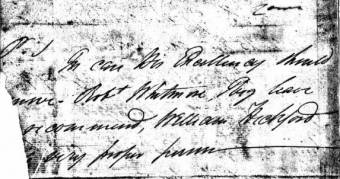 P.S.
In case His Excellency should
Robt. Whitmore I beg leave
recommend, William Pickford
very proper person